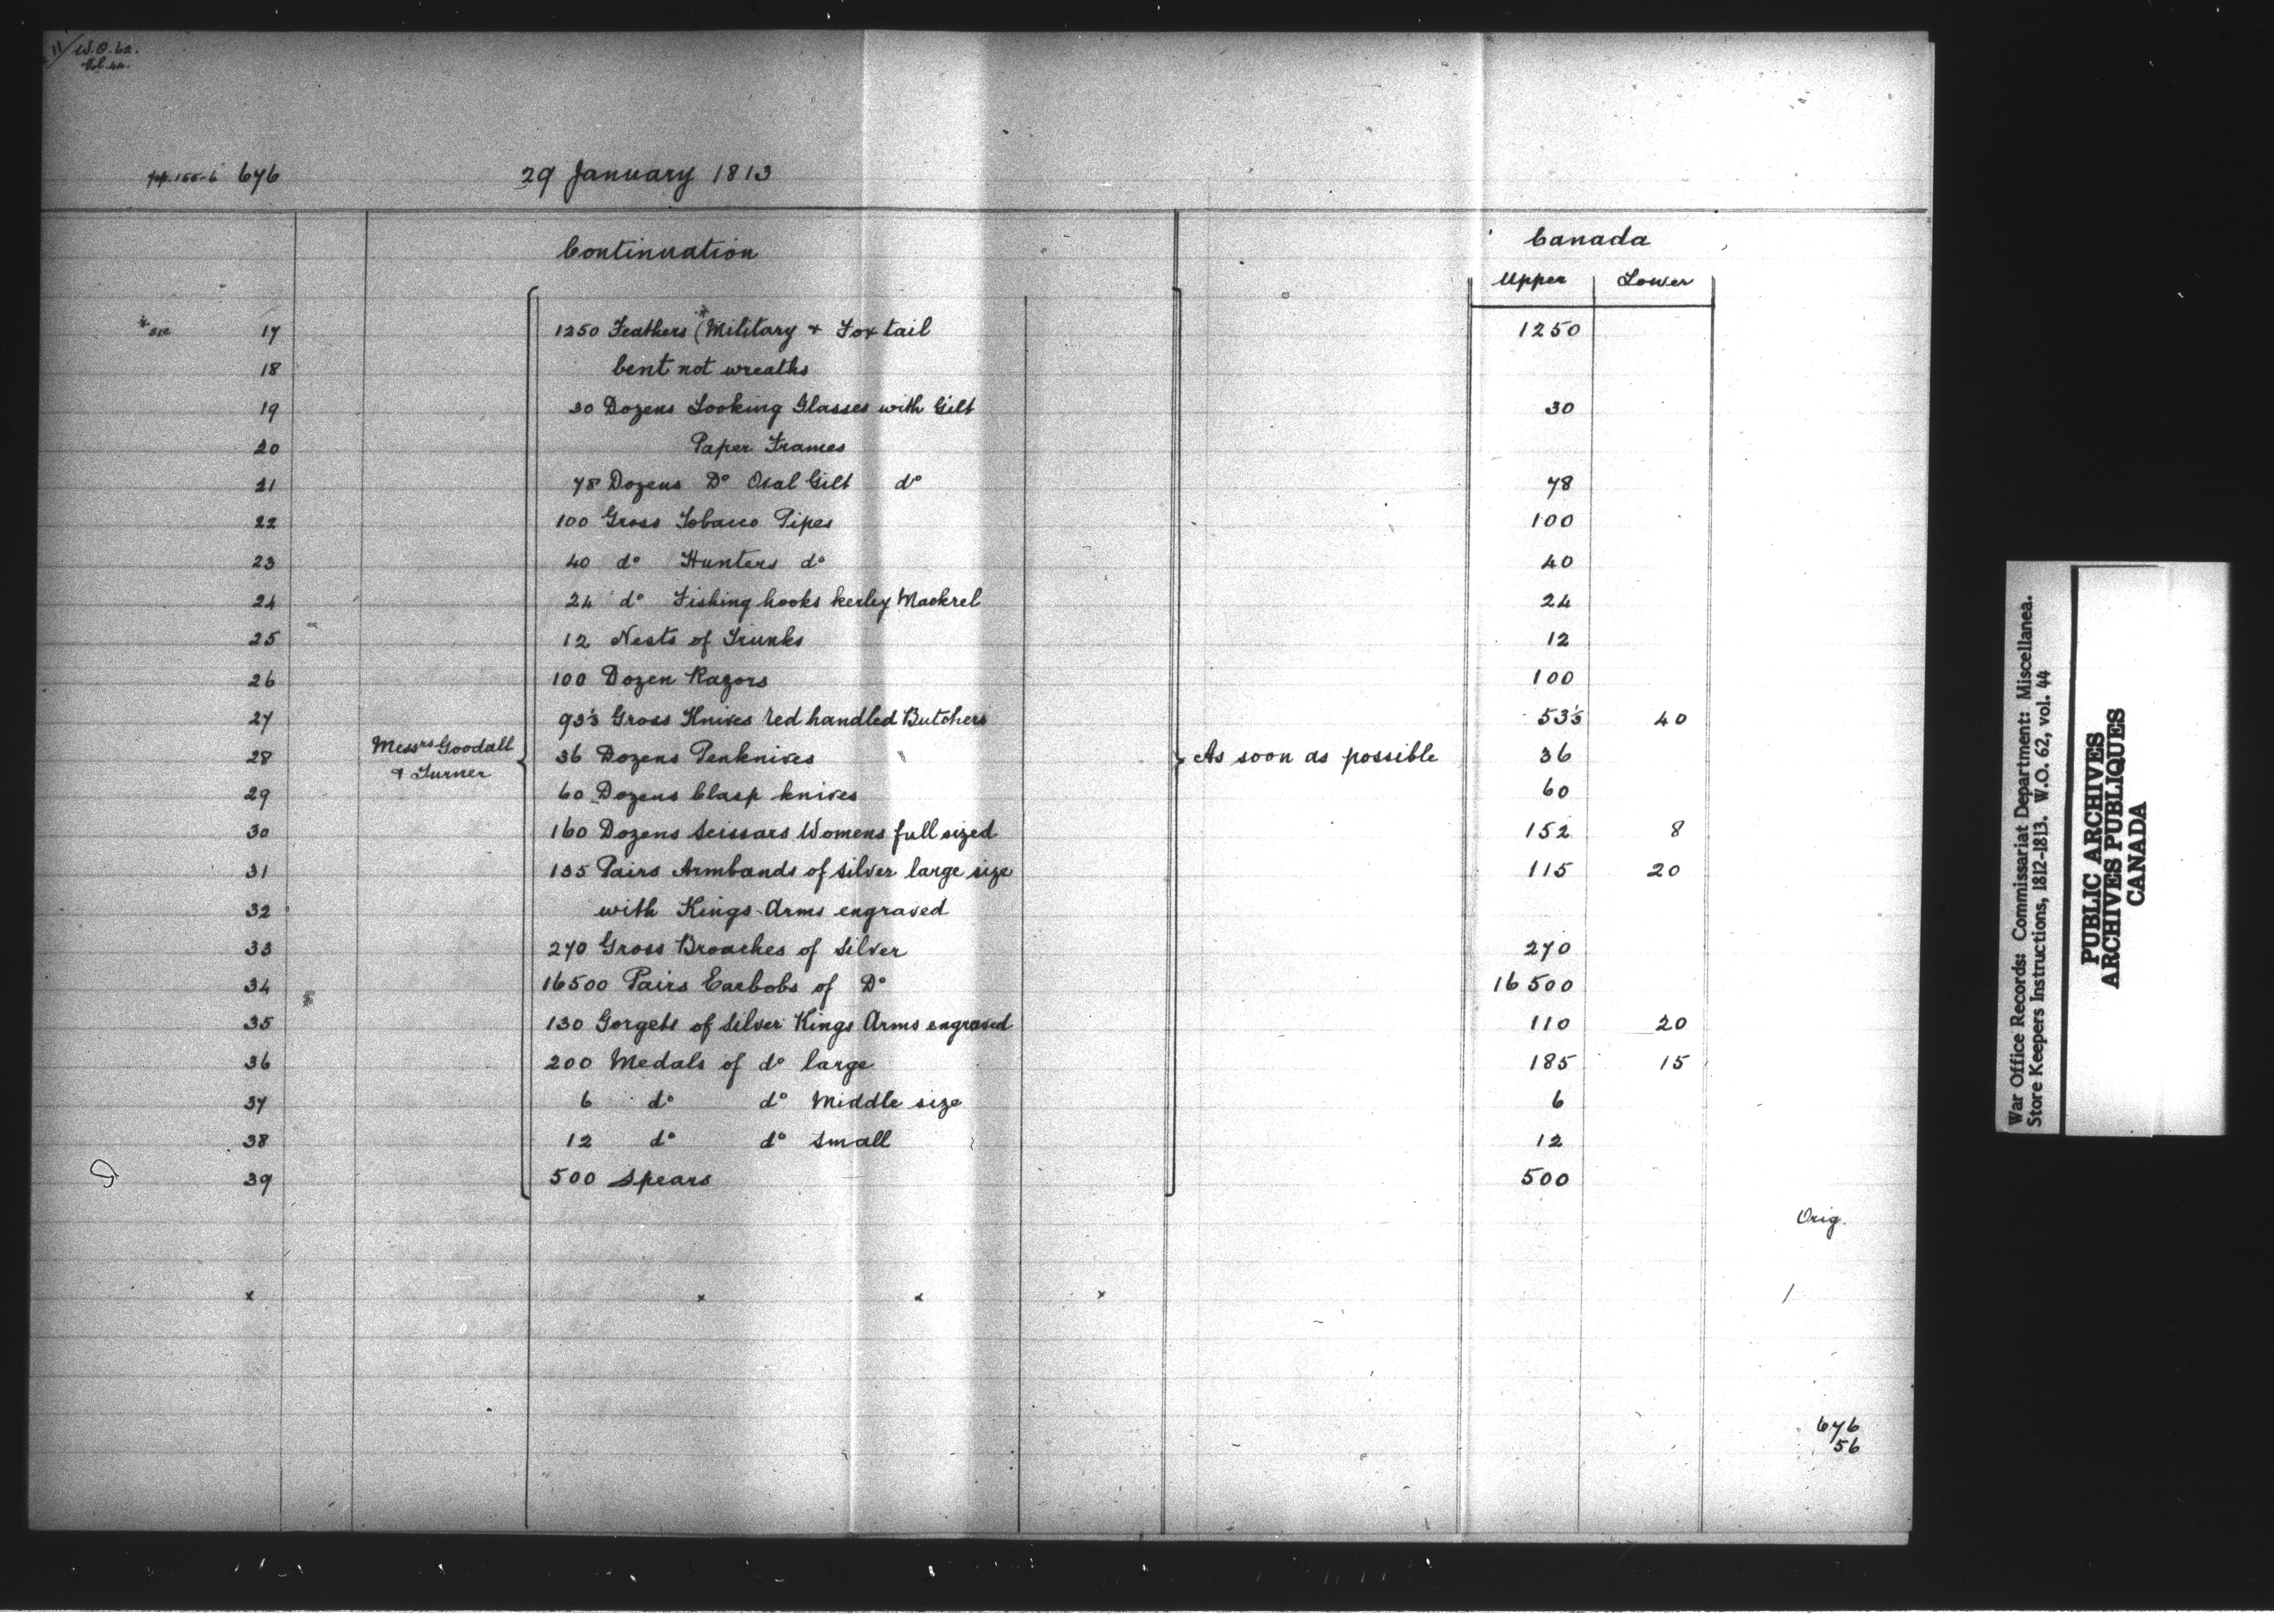 11/ W.O. 62.
Vol. 44.
pp. 155-6 676 29 January 1813
Continuation Canada
Upper Lower
* sic 17 1250 Feathers (* Military + Fox tail 1250
18 bent not wreaths
19 30 Dozens Looking Glasses with Gilt 30
20 Paper Frames
21 78 Dozens Do Oval Gilt do 78
22 100 Gross Tobacco Pipes 100
23 40 do Hunters do 40
24 24 do Fishing hooks kerley Mackrel 24
25 12 Nests of Trunks 12
26 100 Dozen Razors 100
27 93⅓ Gross Knives red handled Butchers 53⅓ 40
28 Messrs Goodall & Turner 36 Dozens Penknives As soon as possible 36
29 60 Dozens Clasp knives 60
30 160 Dozens Scissars Womens full sized 152 8
31 135 Pairs Armbands of silver large size 115 20
32 with Kings Arms engraved
33 270 Gross Broaches of silver 270
34 16500 Pairs Earbobs of Do 16500
35 130 Gorgets of Silver Kings Arms engraved 110 20
36 200 Medals of do large 185 15
37 6 do do Middle size 6
38 12 do do small 12
39 500 Spears 500
Orig.
x x x x /
676
56
War Office Records: Commissariat Department: Miscellanea.
Store Keepers Instructions, 1812-1813. W.O. 62, vol. 44
PUBLIC ARCHIVES
ARCHIVES PUBLIQUES
CANADA